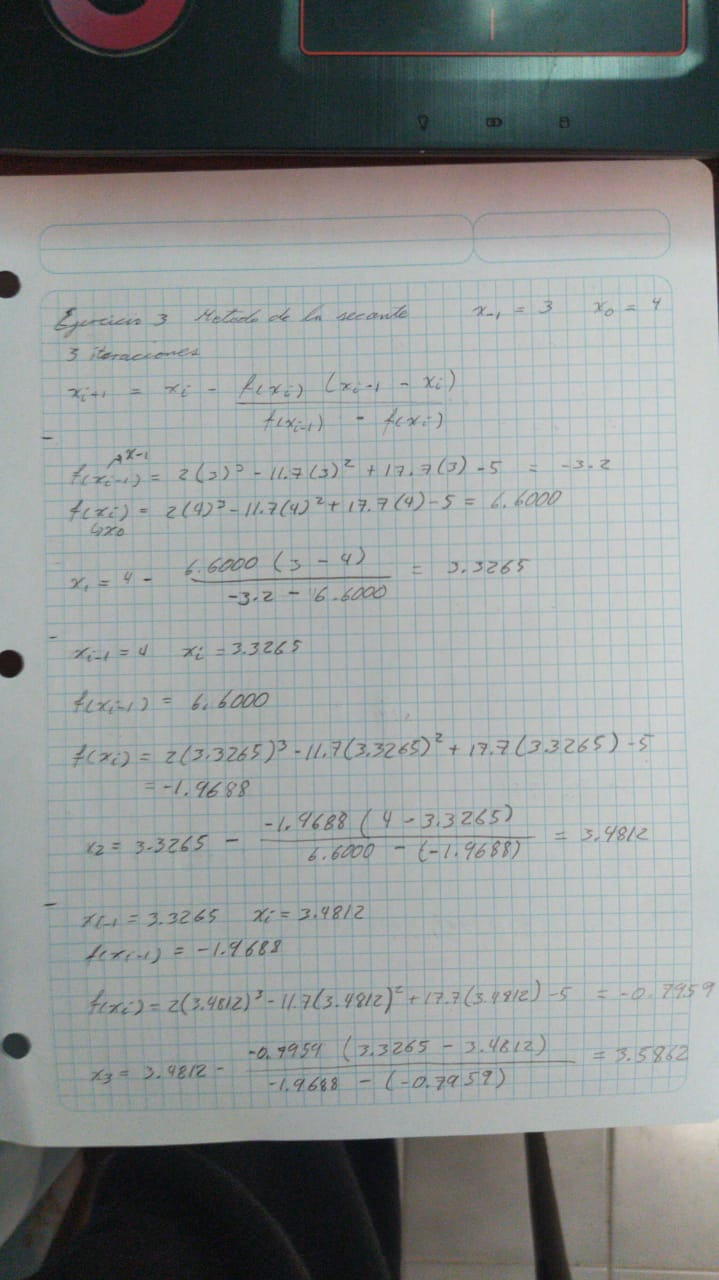 Ejercicio 3 Metodo de la secante x₋₁ = 3 x₀ = 4
3 iteraciones
xᵢ₊₁ = xᵢ - f(xᵢ) (xᵢ₋₁ - xᵢ) / f(xᵢ₋₁) - f(xᵢ)
↗x-1
f(xᵢ₋₁) = 2(3)³ - 11.7(3)² + 17.7(3) - 5 = -3.2
f(xᵢ) = 2(4)³ - 11.7(4)² + 17.7(4) - 5 = 6.6000
↳x₀
x₁ = 4 - 6.6000 (3 - 4) / -3.2 - 6.6000 = 3.3265
- xᵢ₋₁ = 4 xᵢ = 3.3265
f(xᵢ₋₁) = 6.6000
f(xᵢ) = 2(3.3265)³ - 11.7(3.3265)² + 17.7(3.3265) - 5
= -1.9688
x₂ = 3.3265 - -1.9688 (4 - 3.3265) / 6.6000 - (-1.9688) = 3.4812
- xᵢ₋₁ = 3.3265 xᵢ = 3.4812
f(xᵢ₋₁) = -1.9688
f(xᵢ) = 2(3.4812)³ - 11.7(3.4812)² + 17.7(3.4812) - 5 = -0.7959
x₃ = 3.4812 - -0.7959 (3.3265 - 3.4812) / -1.9688 - (-0.7959) = 3.5862